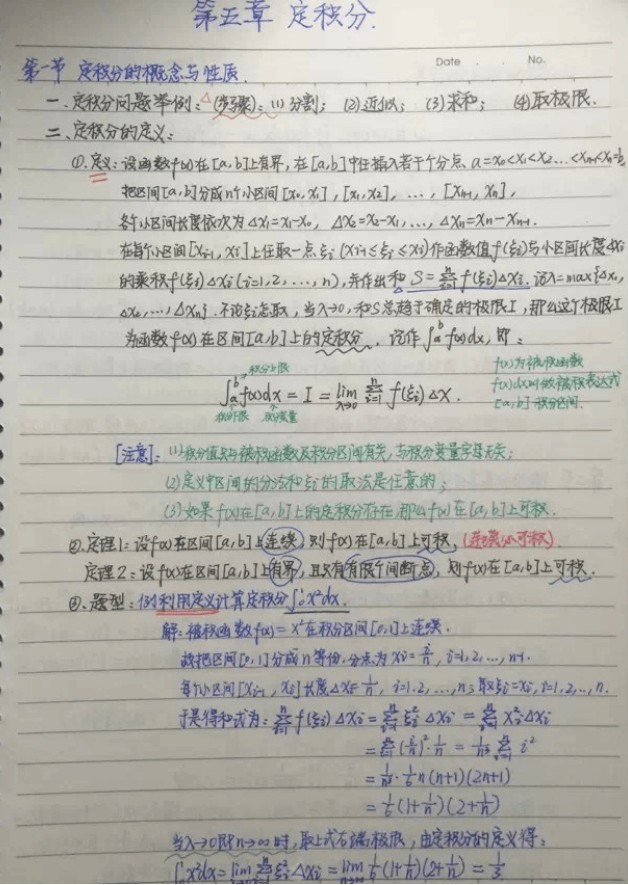 第五章 定积分.
Date . . No.
第一节 定积分的概念与性质.
一.定积分问题举例:△(步骤):(1)分割; (2)近似; (3)求和; (4)取极限.
二、定积分的定义:
①.定义:设函数f(x)在[a,b]上有界,在[a,b]中任插入若干个分点 a=x₀<x₁<x₂...<xₙ₋₁<xₙ=b,
把区间[a,b]分成n个小区间[x₀,x₁],[x₁,x₂],...,[xₙ₋₁,xₙ],
各个小区间长度依次为Δx₁=x₁-x₀, Δx₂=x₂-x₁,..., Δxₙ=xₙ-xₙ₋₁.
在每个小区间[xᵢ₋₁,xᵢ]上任取一点ξᵢ(xᵢ₋₁≤ξᵢ≤xᵢ)作函数值f(ξᵢ)与小区间长度Δxᵢ
的乘积f(ξᵢ)Δxᵢ(i=1,2,...,n),并作出和 S=∑ᵢ₌₁ⁿ f(ξᵢ)Δxᵢ.记λ=max{Δx₁,
Δx₂,...,Δxₙ}.不论ξᵢ怎取,当λ→0,和S总趋于确定的极限I,那么这个极限I
为函数f(x)在区间[a,b]上的定积分. 记作∫ₐᵇf(x)dx,即:
积分上限
f(x)为被积函数
∫ₐᵇf(x)dx = I = lim(λ→0) ∑ᵢ₌₁ⁿ f(ξᵢ)ΔX.
f(x)dx叫做被积表达式
积分下限 积分变量
[a,b]积分区间.
[注意]:(1)积分值只与被积函数及积分区间有关,与积分变量字母无关;
(2)定义中区间的分法和ξᵢ的取法是任意的;
(3)如果f(x)在[a,b]上的定积分存在,那么f(x)在[a,b]上可积.
②.定理1:设f(x)在区间[a,b]上连续,则f(x)在[a,b]上可积.(连续必可积)
定理2:设f(x)在区间[a,b]上有界,且只有有限个间断点,则f(x)在[a,b]上可积.
④.题型:例利用定义计算定积分∫₀¹x²dx.
解:被积函数f(x)=x²在积分区间[0,1]上连续.
故把区间[0,1]分成n等份.分点为xᵢ=i/n, i=1,2,...,n-1.
每个小区间[xᵢ₋₁,xᵢ]长度Δx=1/n, i=1,2,...,n;取ξᵢ=xᵢ,i=1,2,..,n.
于是得和式为:∑ᵢ₌₁ⁿ f(ξᵢ)Δxᵢ=∑ᵢ₌₁ⁿ ξᵢ²Δxᵢ=∑ᵢ₌₁ⁿ xᵢ²Δxᵢ
=∑ᵢ₌₁ⁿ(i/n)²·1/n = 1/n³ ∑ᵢ₌₁ⁿ i²
=1/n³·1/6 n(n+1)(2n+1)
=1/6(1+1/n)(2+1/n)
当λ→0即n→∞时,取上式右端极限,由定积分的定义得:
∫₀¹x²dx=lim(λ→0)∑ᵢ₌₁ⁿξᵢ²Δxᵢ=lim(n→∞)1/6(1+1/n)(2+1/n)=1/3